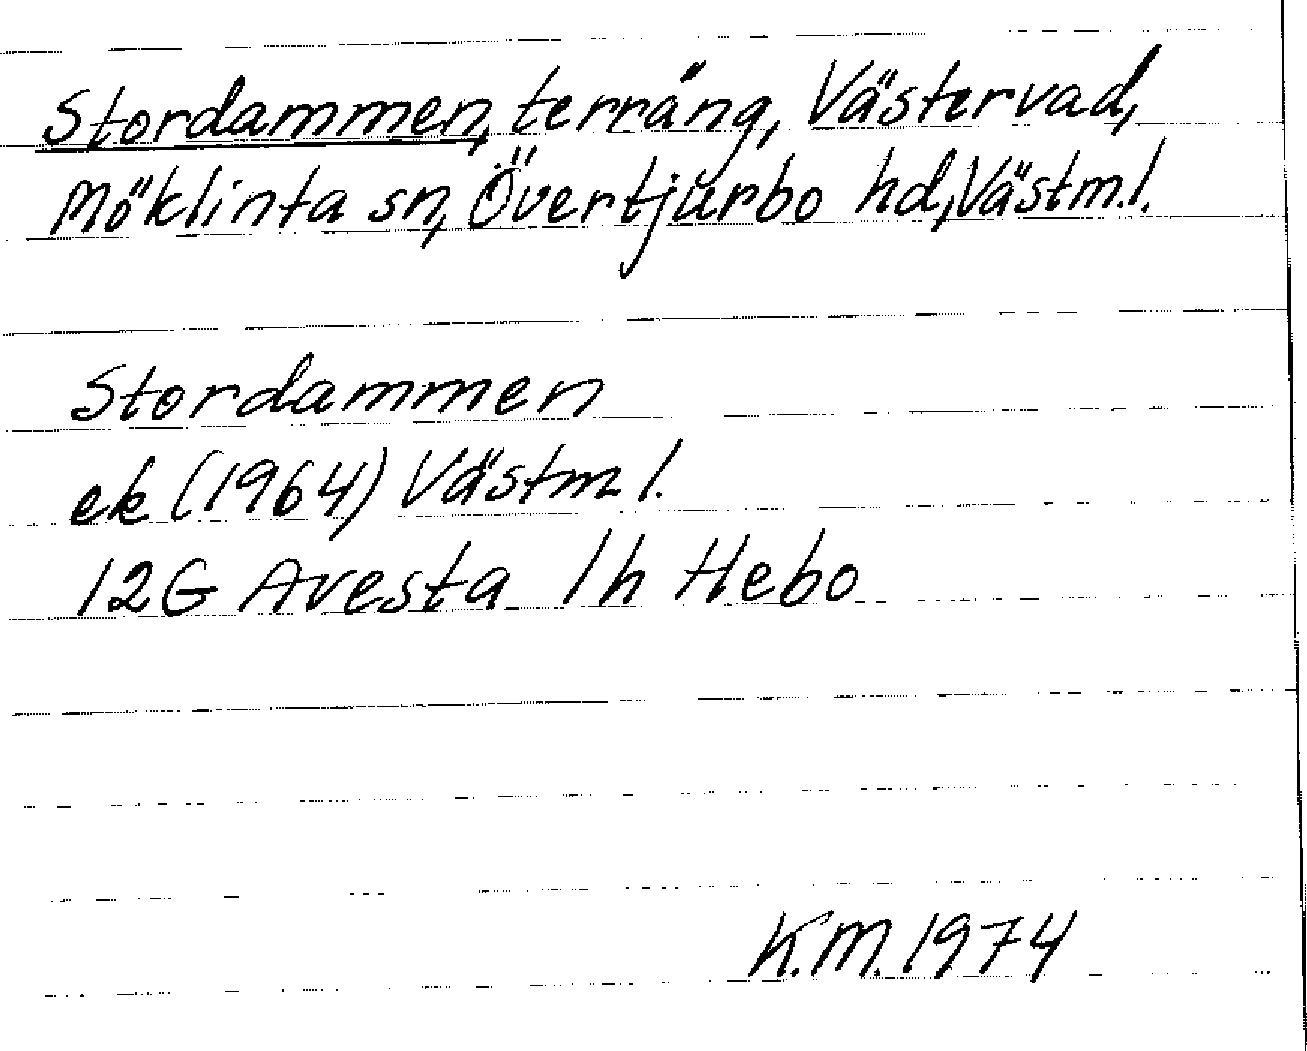 Stordammen, terräng, Västervad,
Möklinta sn, Övertjurbo hd, Västm.l.
Stordammen
ek (1964) Västm l.
12G Avesta 1h Hebo
K.M. 1974